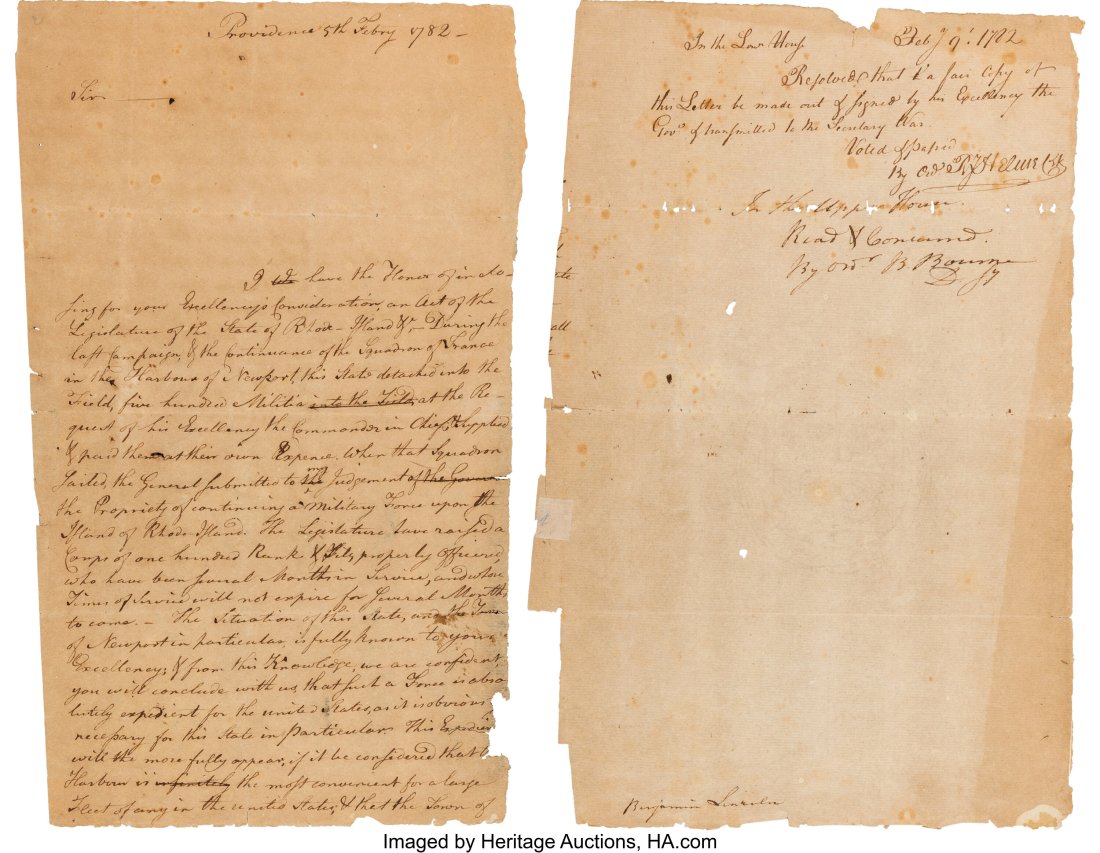 Providence 5th Febry 1782 -
Sir
I have the Honor of inclo-
sing for your Excellency's Consideration, an Act of the
Legislature of the State of Rhode-Island &c. During the
last Campaign, & the Continuance of the Squadron of France
in the Harbour of Newport, this State detached into the
Field, five hundred Militia into the Field, at the Re-
quest of his Excellency the Commander in Chief, & supplied
& paid them at their own Expence. When that Squadron
sailed, the General submitted to my Judgement of the Govern
the Propriety of continuing a Military Force upon the
Island of Rhode-Island. The Legislature have raised a
Corps of one hundred Rank & File, properly officered,
who have been several Months in Service, and whose
Times of Service will not expire for several Months
to come. - The Situation of this State, and the Town
of Newport in particular, is fully known to your
Excellency; & from this Knowledge, we are confident
you will conclude with us, that such a Force is abso-
lutely expedient for the united States, as it is obvious
necessary for this State in particular. This Expedien
will the more fully appear, if it be considered that t
Harbour is infinitely the most convenient for a large
Fleet of any in the united States, & that the Town of
In the Lower House Feby 9th 1782
Resolved that a fair Copy of
this Letter be made out & signed by his Excellency the
Govr & transmitted to the Secretary War.
Voted & passed
By Ord
In the Upper House
Read & Concurred
By Ordr B Bourne
D Sy
ate
all
Benjamin Lincoln
Imaged by Heritage Auctions, HA.com